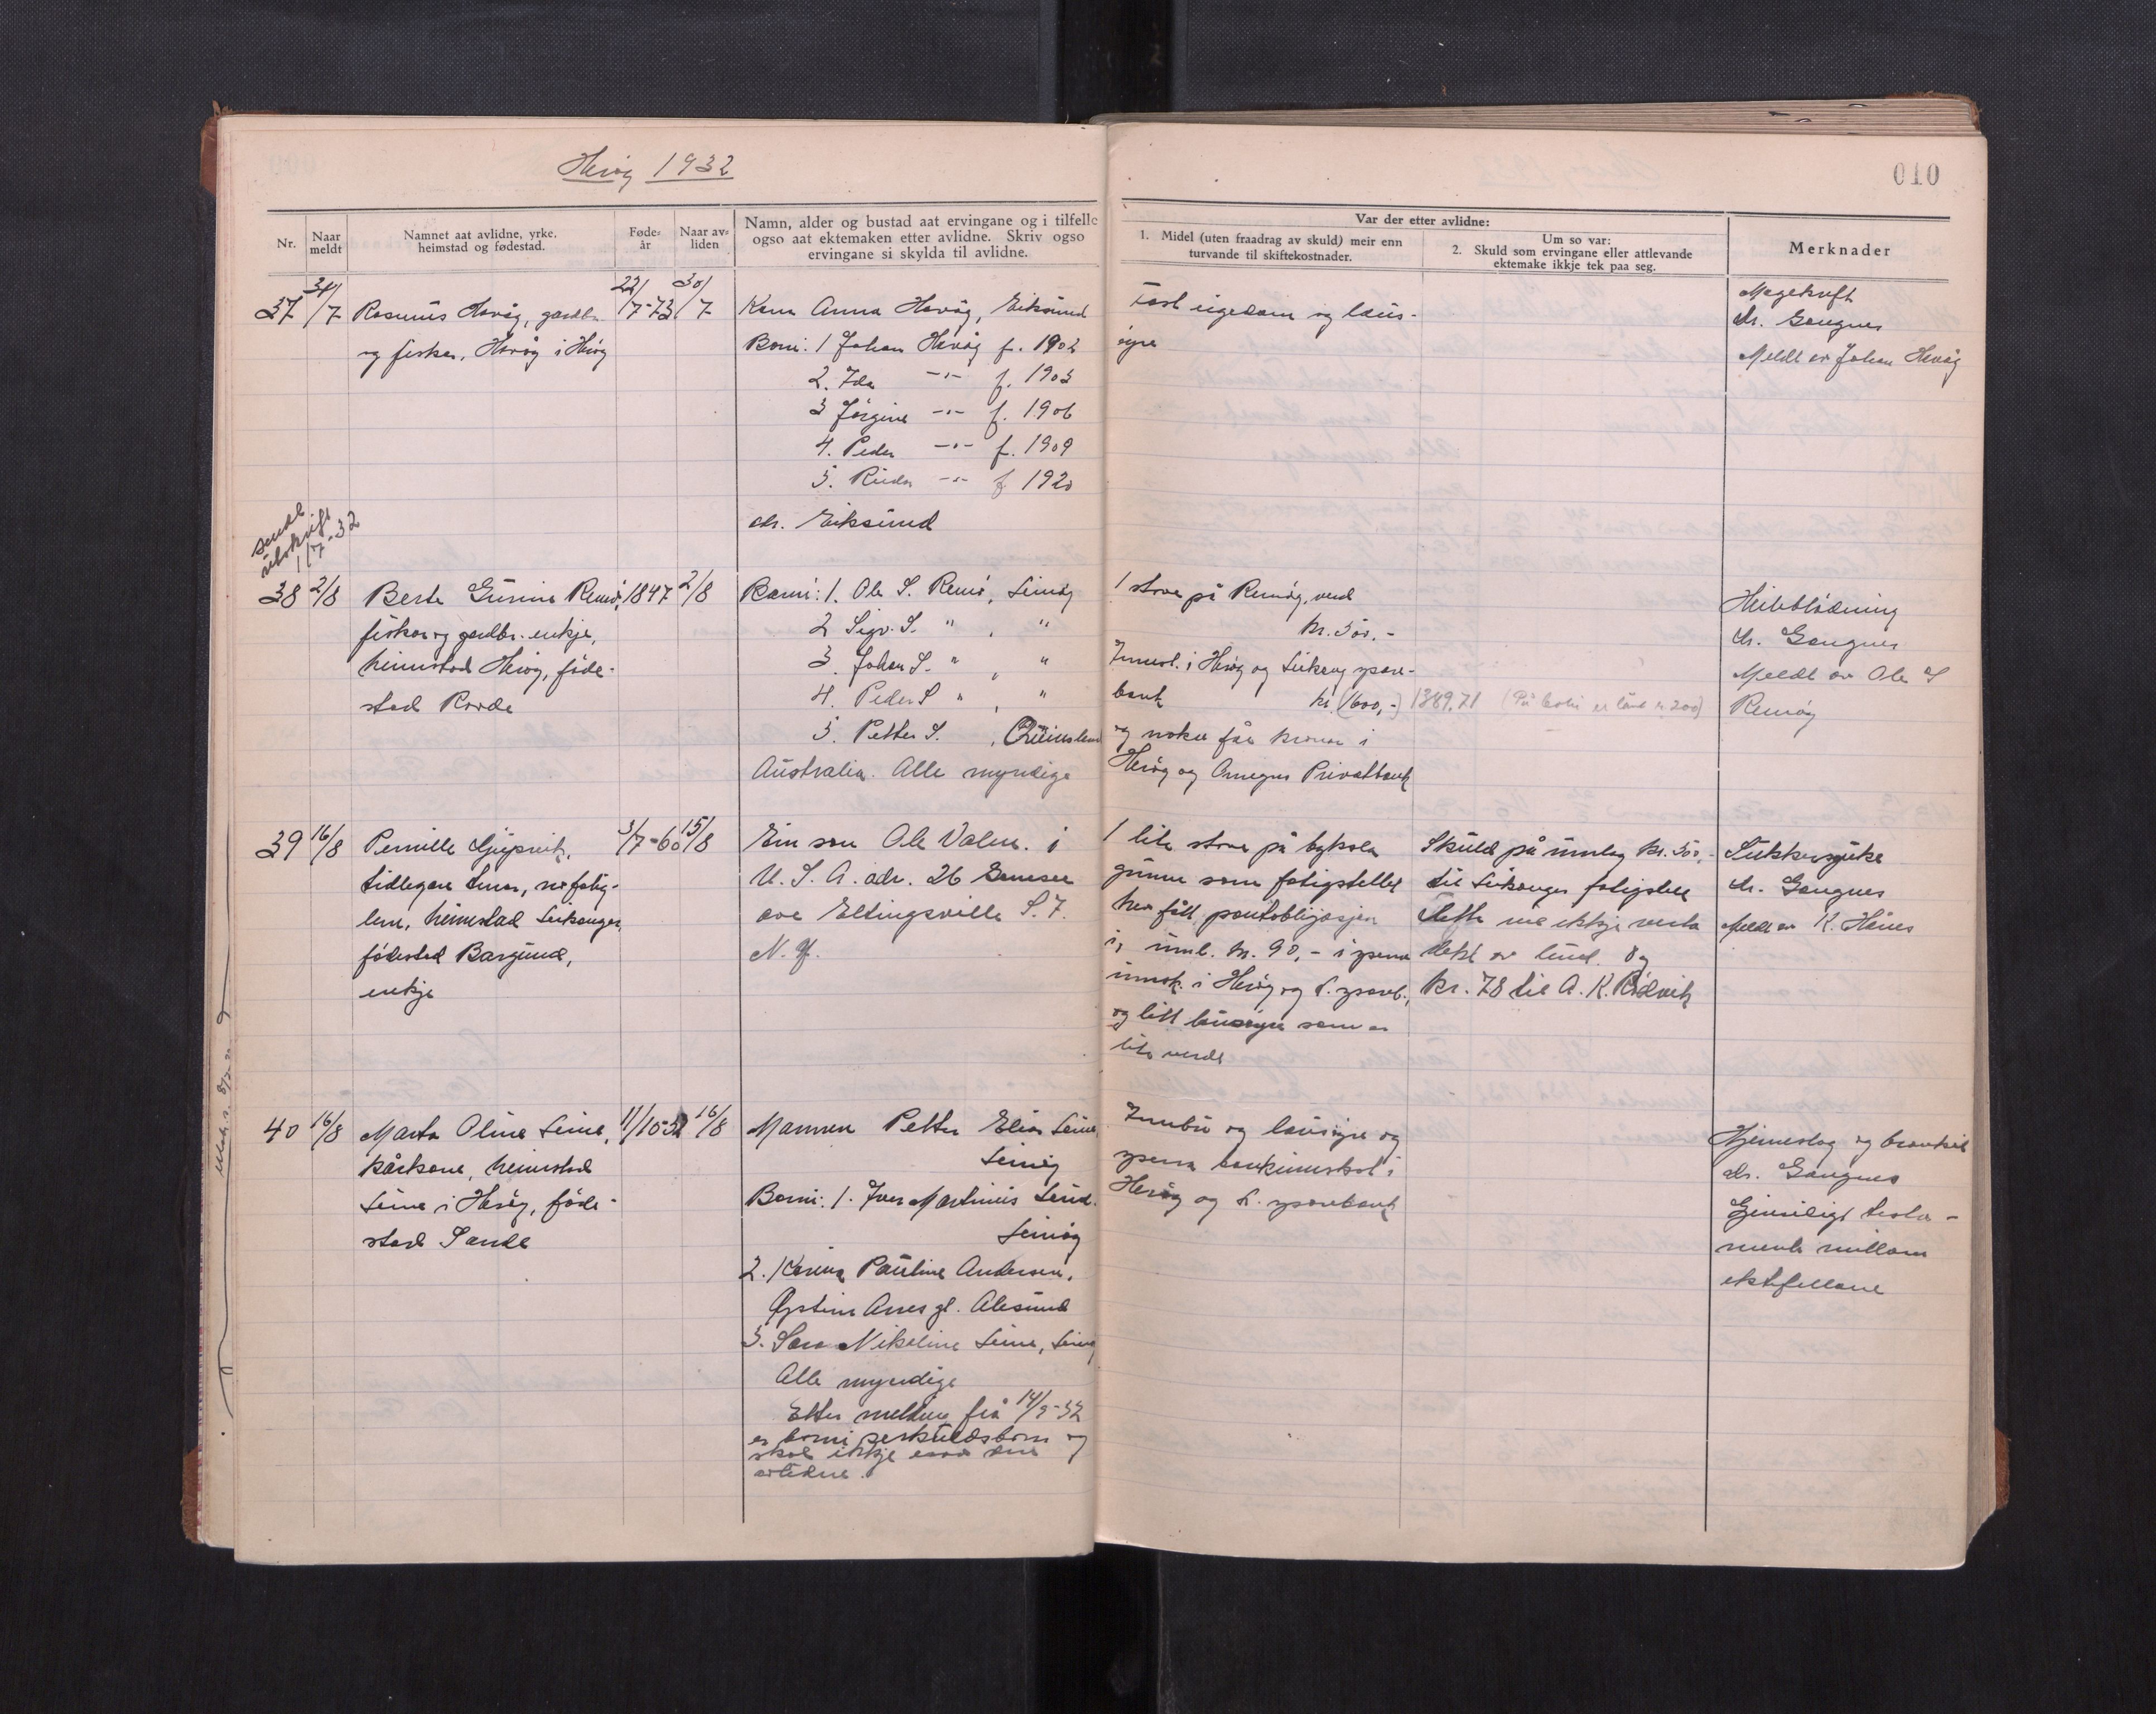 Herøy 1932
010
Nr.
Naar meldt
Namnet aat avlidne, yrke. heimstad og fødestad.
Føde-år
Naar av-liden
Namn, alder og bustad aat ervingane og i tilfelle
ogso aat ektemaken etter avlidne. Skriv ogso
ervingane si skylda til avlidne.
Var der etter avlidne:
1. Midel (uten fraadrag av skuld) meir enn
turvande til skiftekostnader.
Um so var:
2. Skuld som ervingane eller attlevande
ektemake ikkje tek paa seg.
Merknader
37
31/7
Rasmus Havåg, gardbr.
og fisker, Havåg i Herøy
22/7-73
30/7
Kona Anna Havåg, Eiksund
Born: 1 Johan Havåg f. 1902
2. Ida -"- f. 1903
3 Jørgine -"- f. 1906
4. Peder -"- f. 1909
5. -"- f 1920
adr. Eiksund
Fast eigedom og laus-
øyre
Magekreft
dr. Gangnes
Meldt av Johan Havåg
sendt
utskrift
11/7-32
38
2/8
Berte Gurine Remø,
fiskar og gardbr. enkje,
heimstad Herøy, føde-
stad Rovde
1847
2/8
Born: 1. Ole S. Remø, Leinøy
2 Sigv. S. " , "
3. Johan S. " , "
4. Peder S " , "
5. Petter S. , Queensland
Australia. Alle myndige
1 stove på Remøy, verd
kr. 500.-
Innest. i Herøy og Leikong spare-
bank kr. (1600,-) 1389,71
og nokre får kroner i
Herøy og Omegns Privatbank
(På boki er lånt kr 200)
Heilebløding
dr. Gangnes
Meldt av Ole S
Remøy
39
16/8
Pernille Djupvik,
tidlegare , no fatig-
lem, heimstad Leikanger,
fødestad Borgund,
enkje
3/7-60
15/8
Ein son Ole Valen. i
U. S. A. adr. 26 Genesee
ave Eltingsville S. I.
N. Y.
1 lita stove på bygsla
grunn som fatigstellet
har fått pantobligasjon
i, uml. kr. 90,- i spare
innsk. i Herøy og L. spareb.,
og litt lausøyre som er
lite verdt
Skuld på umlag kr. 500,-
til Leikanger fatigstell
Dette vil ikkje verta
dekt av buet. Og
kr. 78 til A. K. Rødvik
Sukkersjuke
dr. Gangnes
Meldt av K. Hånes
40
16/8
Marta Oline Leine,
kårkone, heimstad
Leine i Herøy, føde-
stad Sande
11/10-52
16/8
Mannen Petter Elias Leine,
Leinøy
Born: 1. Iver Martinus Leine.
Leinøy
2. Karina Pauline Andersen,
Øystein gt. Ålesund
3. Sara Nikoline Leine, Leinøy
Alle myndige
Etter melding frå 14/9-32
er borni serkullsborn og
skal ikkje erva den
avlidne.
Innbu og lausøyre og
spara bankinnskot i
Herøy og L. sparebank
Hjerneslag og bronkit
dr. Gangnes
Gjensidigt testa-
mente millom
ektefellane